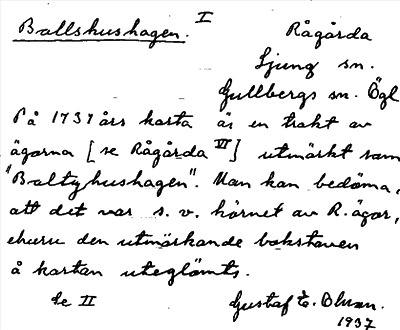 Ballshushagen. I
Rågårda
Ljung sn.
Gullbergs sn. Ögl
På 1737 års karta är en trakt av
ägorna [se Rågårda VI] utmärkt som
"Baltyhushagen". Man kan bedöma,
att det var s. v. hörnet av R. ägor,
ehuru den utmärkande bokstaven
å kartan uteglömts.
Se II
Gustaf E. Ohan.
1937